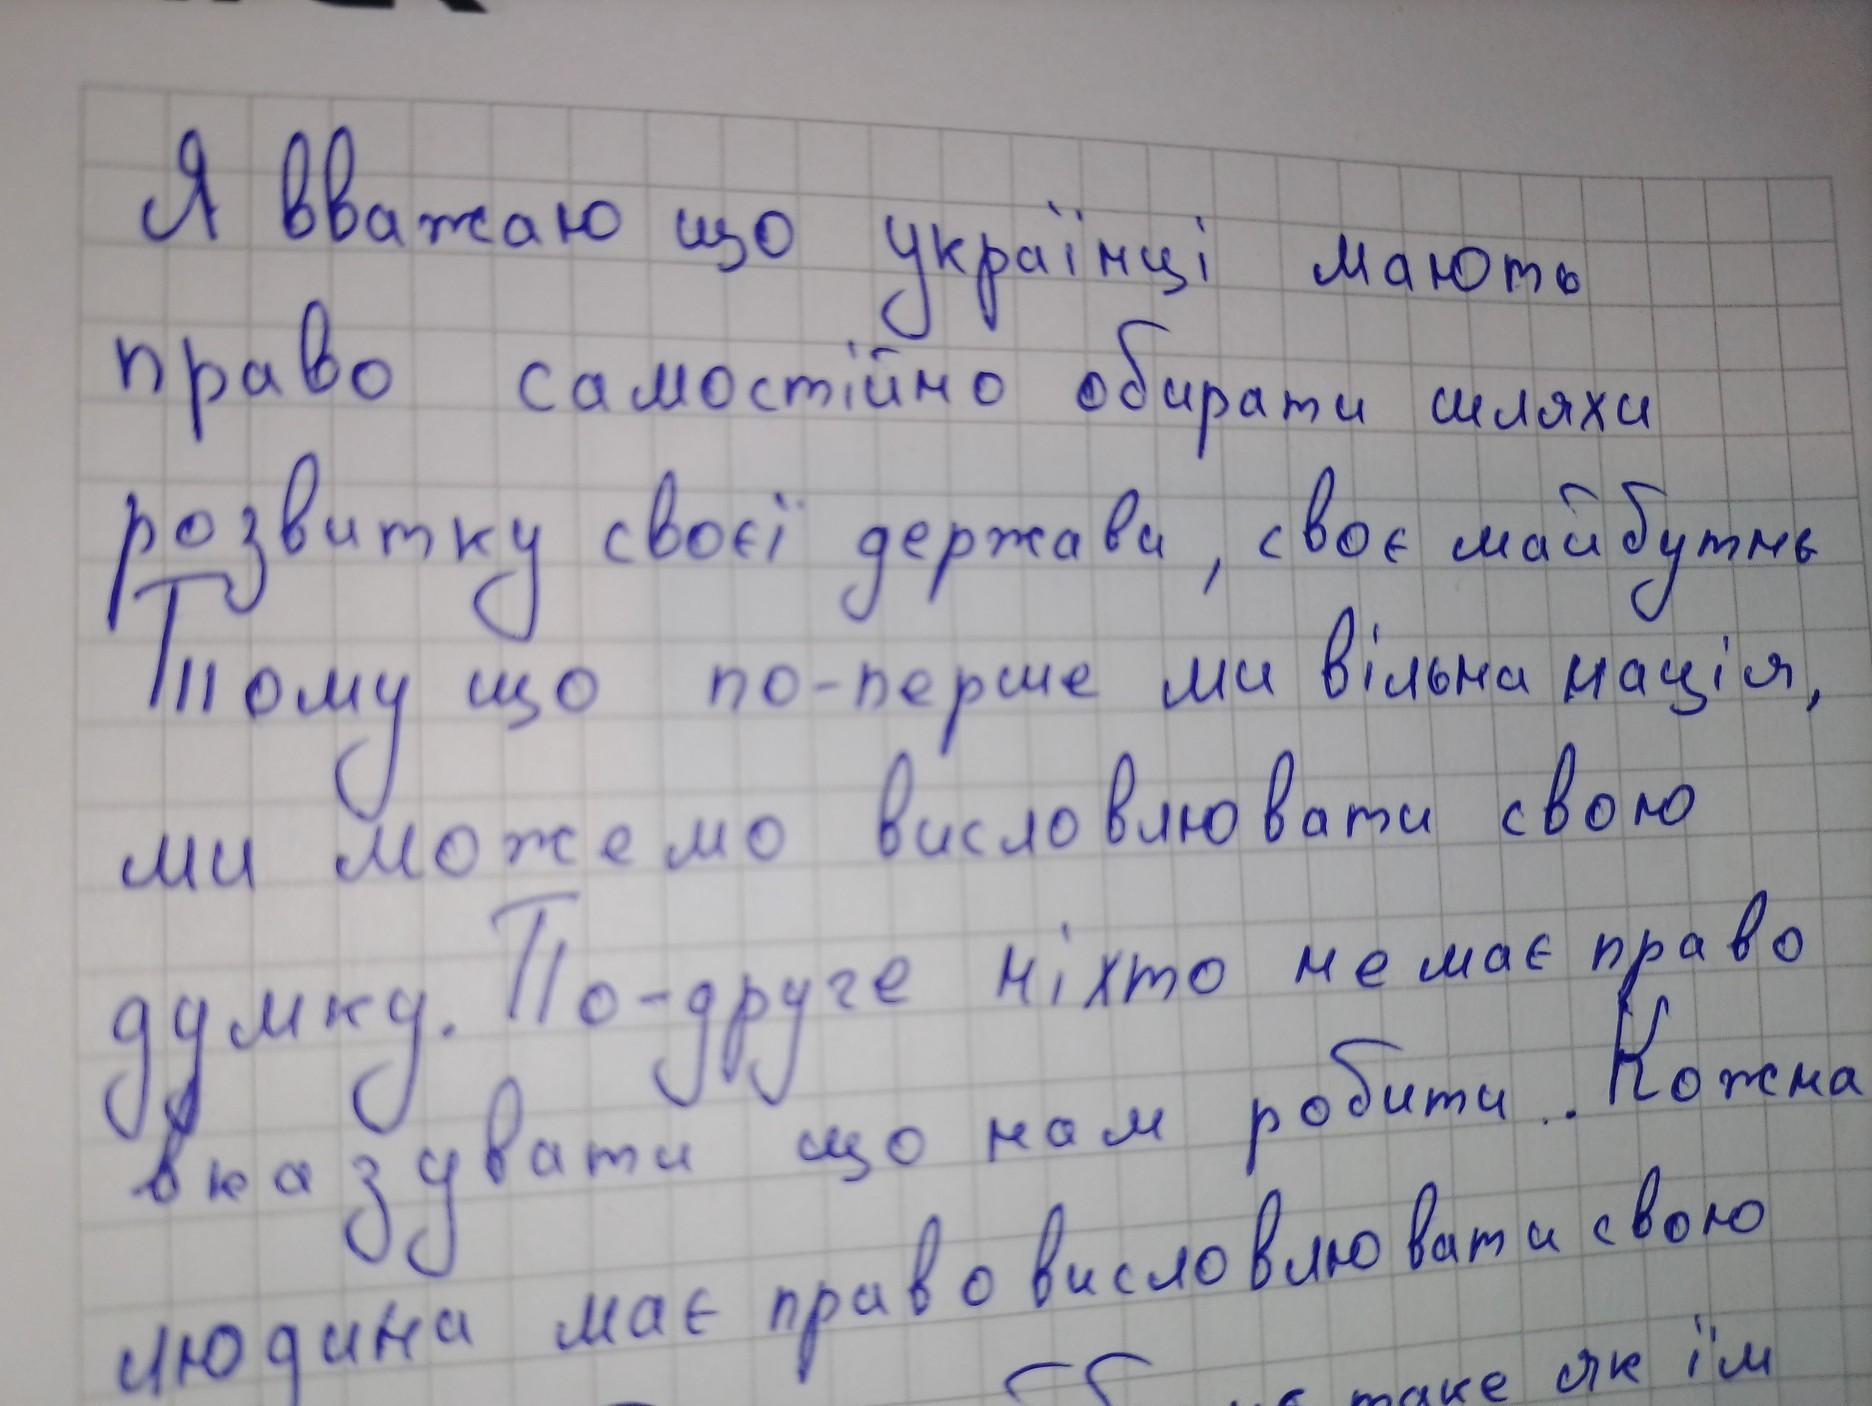 Я вважаю що українці мають
право самостійно обирати шляхи
розвитку своєї держави, своє майбутнь
Тому що по-перше ми вільна нація,
ми можемо висловлювати свою
думку. По-друге ніхто не має право
вказувати що нам робити.. Кожна
людина має право висловлювати свою
таке як їм